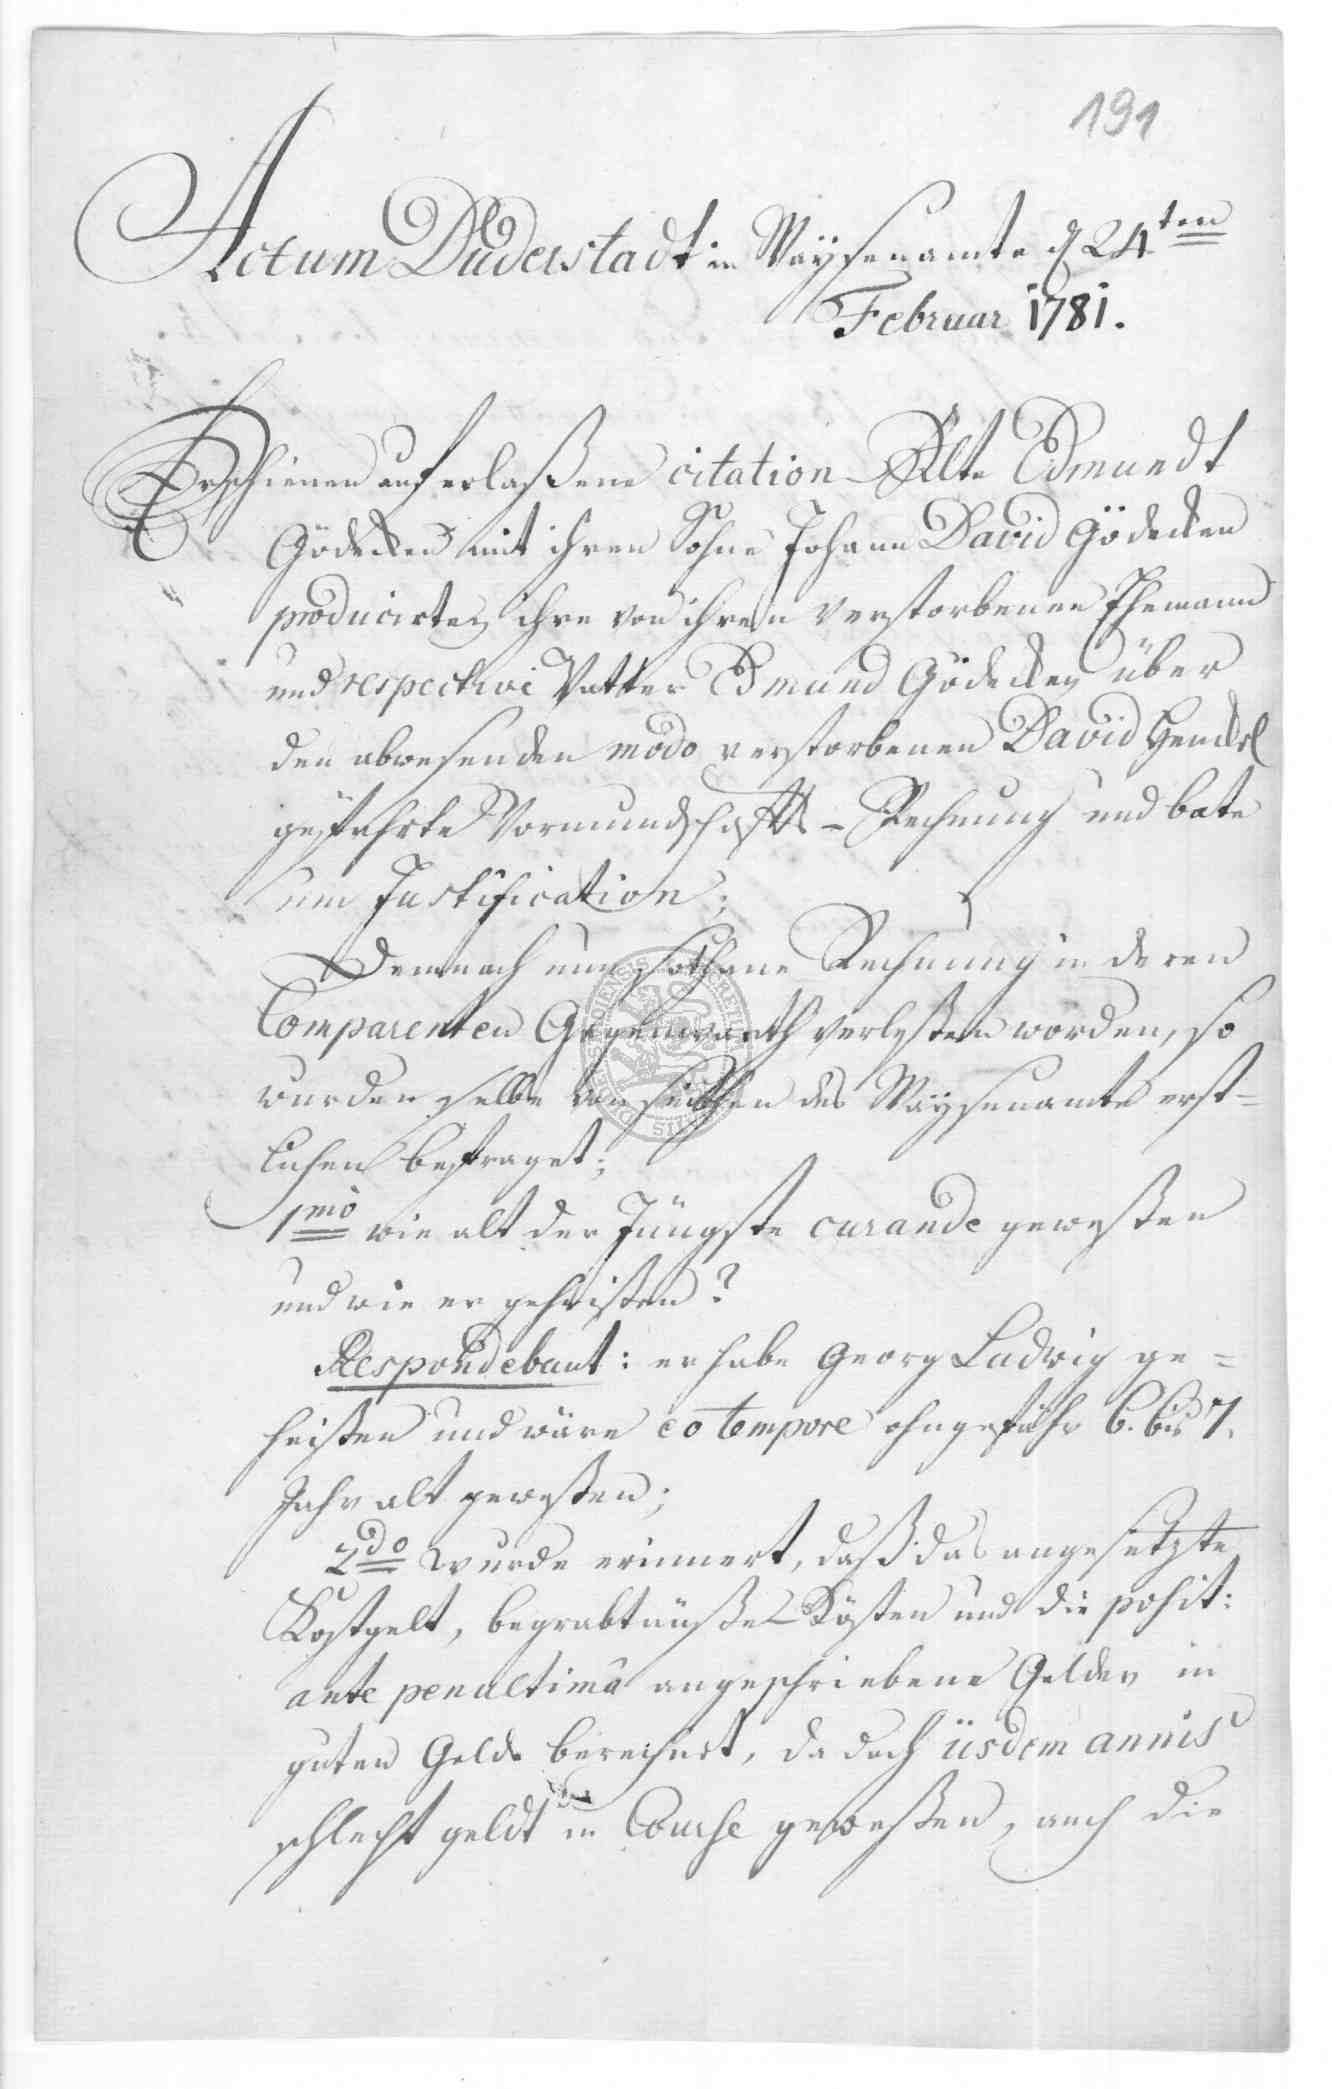 191
Actum Duderstadt in Waÿsenamte d 24ten
Februar 1781.
Erschienen auf erlaßene citation Alte Edmundt
Gödecken mit ihren Sohne Johann David Gödecken
producirten ihre von ihren verstorbenen Ehemann
und respective Vatter Edmund Gödecken über
den abwesenden modo verstorbenen David Henckel
geführte Vormundschafts-Rechnung und bate
um Justification;
Demnach nun sothane Rechnung in deren
Comparenten Gegenwarth verleßen worden, so
wurden selbe von seithen des Waÿsenamts erst=
lichen befraget;
1mo wie alt der Jüngste curande geweßen
und wie er geheißen?
Respondebant: er habe Georg Ludwig ge=
heißen und wäre eo tempore ohngefähr 6. bis 7.
Jahr alt geweßen;
2do wurde erinnert, daß das angesetzte
Kostgelt, begrabtnüße Kösten und die posit:
ante penultima angeschriebene Gelder in
guten Gelde berechnet, da doch iisdem annis
schlecht geldt in Course geweßen, auch die